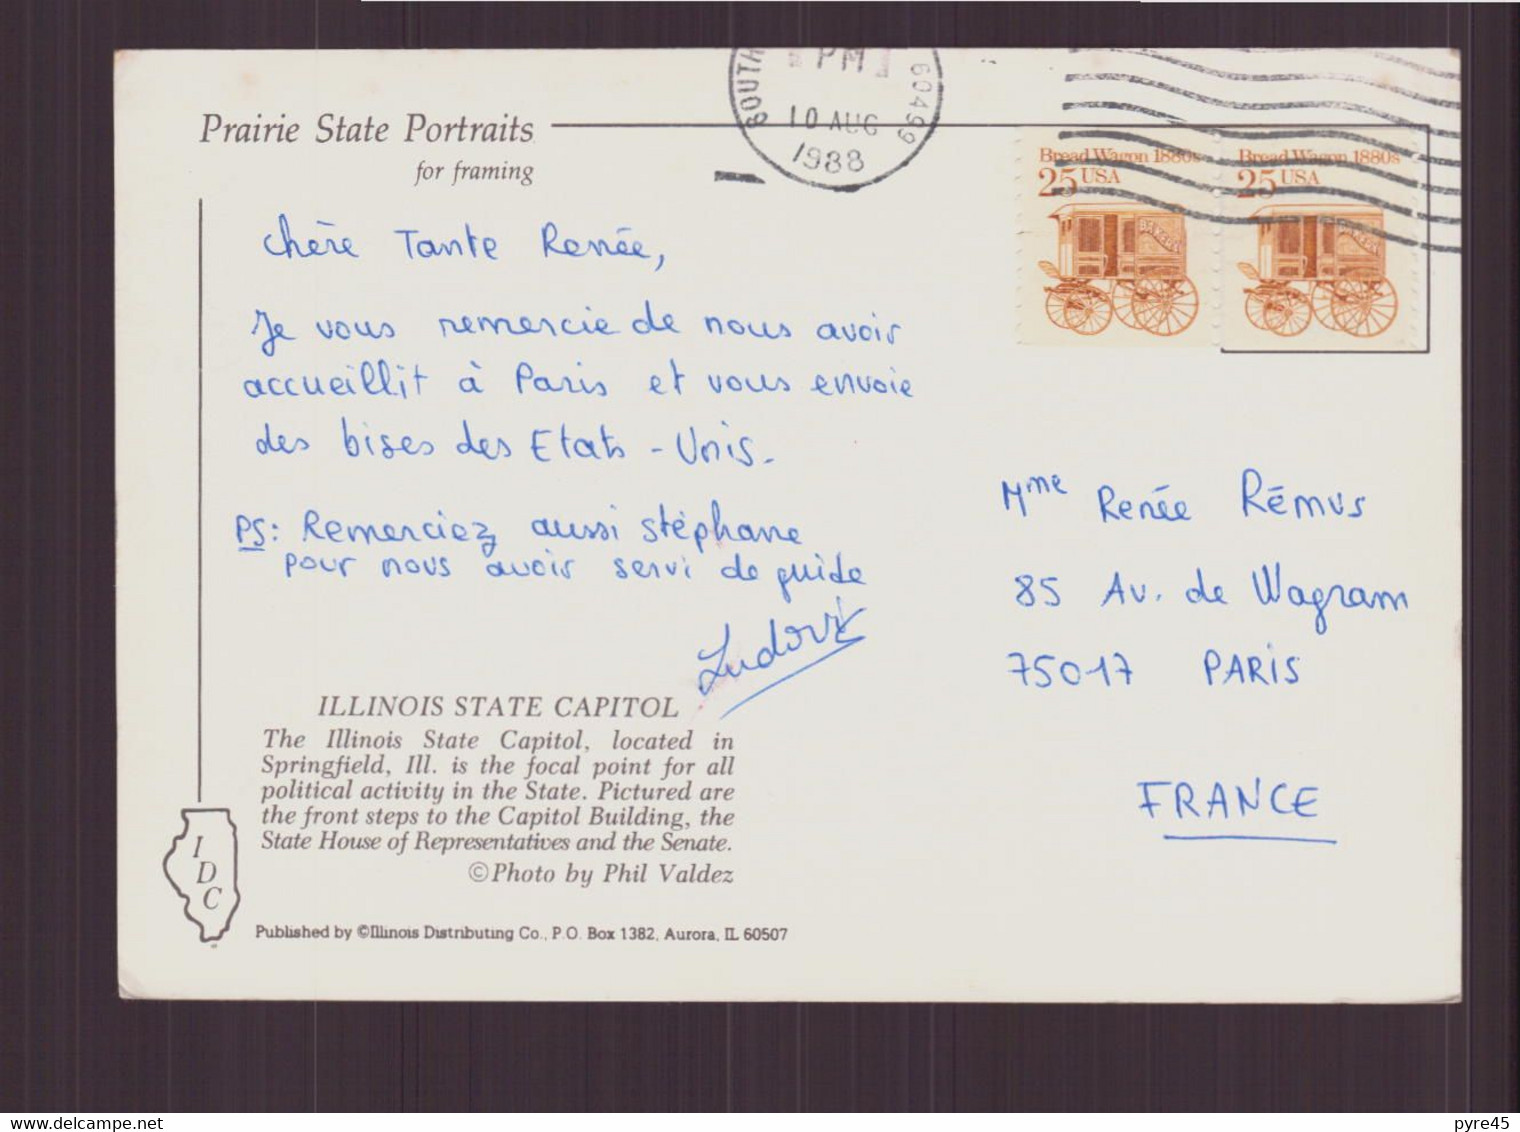 Prairie State Portraits
for framing
SOUTH
PM
60499
10 AUG
1988
Bread Wagon 1880s
25 USA
BAKERY
Bread Wagon 1880s
25 USA
BAKERY
Chère Tante Renée,
Je vous remercie de nous avoir
accueillit à Paris et vous envoie
des bises des Etats-Unis.
PS: Remerciez aussi Stéphane
pour nous avoir servi de guide
Ludovic
Mme Renée Rémus
85 Av. de Wagram
75017 PARIS
FRANCE
ILLINOIS STATE CAPITOL
The Illinois State Capitol, located in
Springfield, Ill. is the focal point for all
political activity in the State. Pictured are
the front steps to the Capitol Building, the
State House of Representatives and the Senate.
©Photo by Phil Valdez
I
D
C
Published by ©Illinois Distributing Co., P.O. Box 1382, Aurora, IL 60507
pyre45